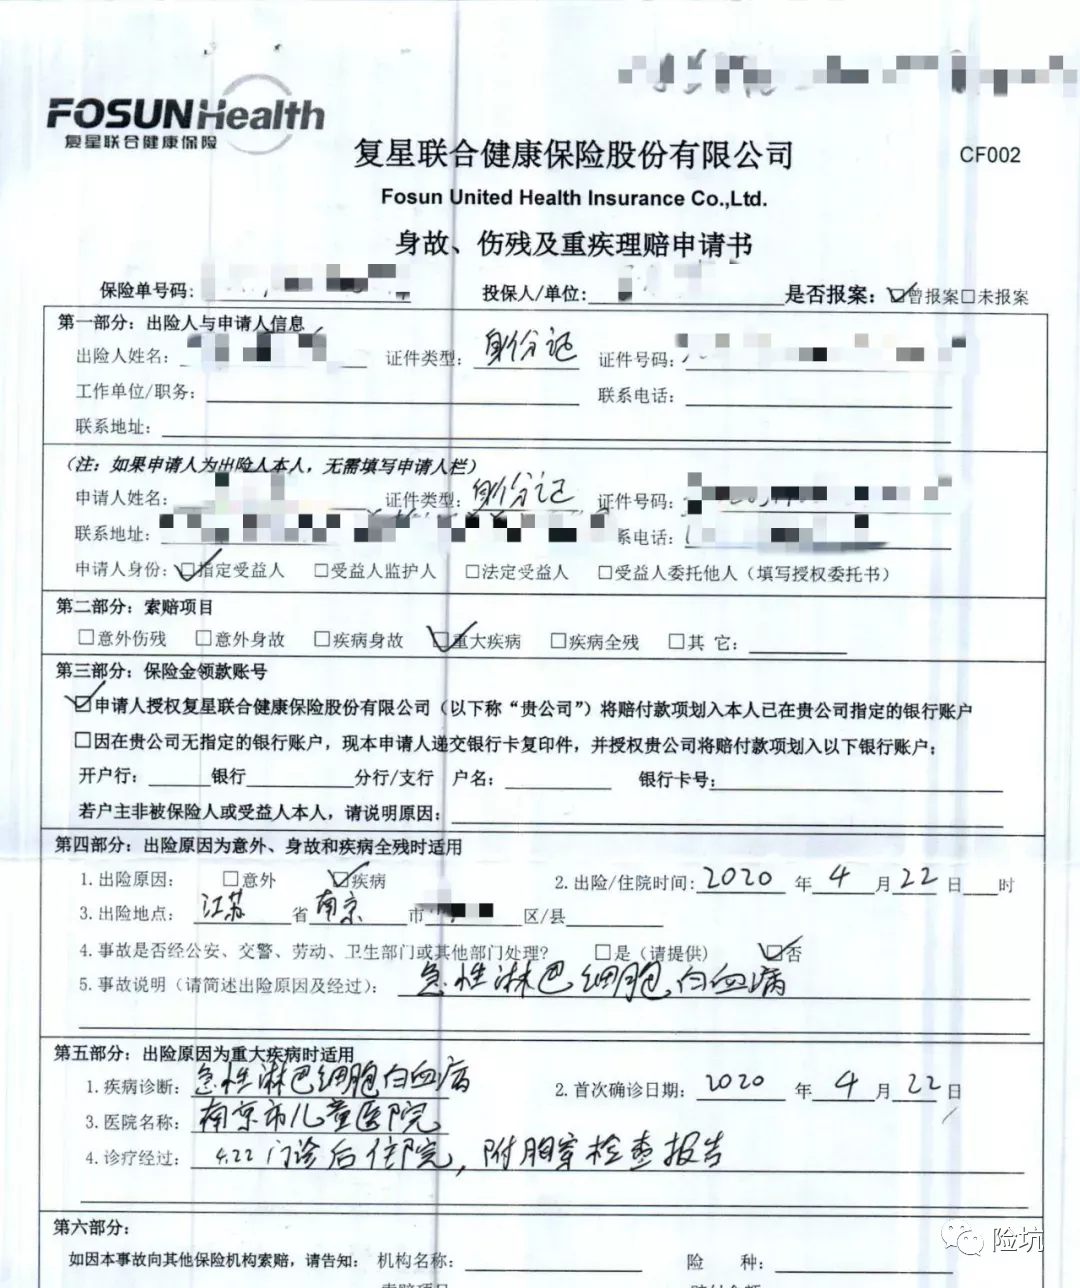 FOSUNHealth
复星联合健康保险
复星联合健康保险股份有限公司
CF002
Fosun United Health Insurance Co.,Ltd.
身故、伤残及重疾理赔申请书
保险单号码: 投保人/单位: 是否报案: ☑曾报案□未报案
第一部分: 出险人与申请人信息
出险人姓名: 证件类型: 身份证 证件号码:
工作单位/职务: 联系电话:
联系地址:
(注: 如果申请人为出险人本人, 无需填写申请人栏)
申请人姓名: 证件类型: 身份证 证件号码:
联系地址: 系电话:
申请人身份: ☑指定受益人 □受益人监护人 □法定受益人 □受益人委托他人 (填写授权委托书)
第二部分: 索赔项目
□意外伤残 □意外身故 □疾病身故 ☑重大疾病 □疾病全残 □其 它:
第三部分: 保险金领款账号
☑申请人授权复星联合健康保险股份有限公司 (以下称“贵公司”) 将赔付款项划入本人已在贵公司指定的银行账户
□因在贵公司无指定的银行账户, 现本申请人递交银行卡复印件, 并授权贵公司将赔付款项划入以下银行账户;
开户行: 银行 分行/支行 户名: 银行卡号:
若户主非被保险人或受益人本人, 请说明原因:
第四部分: 出险原因为意外、身故和疾病全残时适用
1.出险原因: □意外 ☑疾病 2.出险/住院时间: 2020 年 4 月 22 日 时
3.出险地点: 江苏 省 南京 市 区/县
4.事故是否经公安、交警、劳动、卫生部门或其他部门处理? □是 (请提供) ☑否
5.事故说明 (请简述出险原因及经过): 急性淋巴细胞白血病
第五部分: 出险原因为重大疾病时适用
1.疾病诊断: 急性淋巴细胞白血病 2.首次确诊日期: 2020 年 4 月 22 日
3.医院名称: 南京市儿童医院
4.诊疗经过: 4.22门诊后住院, 附胸穿检查报告
第六部分:
如因本事故向其他保险机构索赔, 请告知: 机构名称: 险 种:
险坑